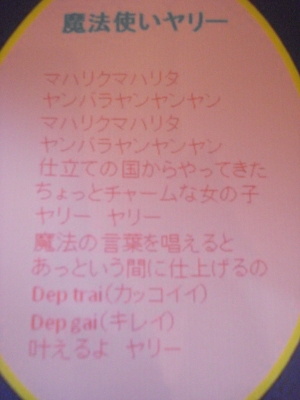 魔法使いヤリー
マハリクマハリタ
ヤンバラヤンヤンヤン
マハリクマハリタ
ヤンバラヤンヤンヤン
仕立ての国からやってきた
ちょっとチャームな女の子
ヤリー ヤリー
魔法の言葉を唱えると
あっという間に仕上げるの
Dep trai(カッコイイ)
Dep gai(キレイ)
叶えるよ ヤリー